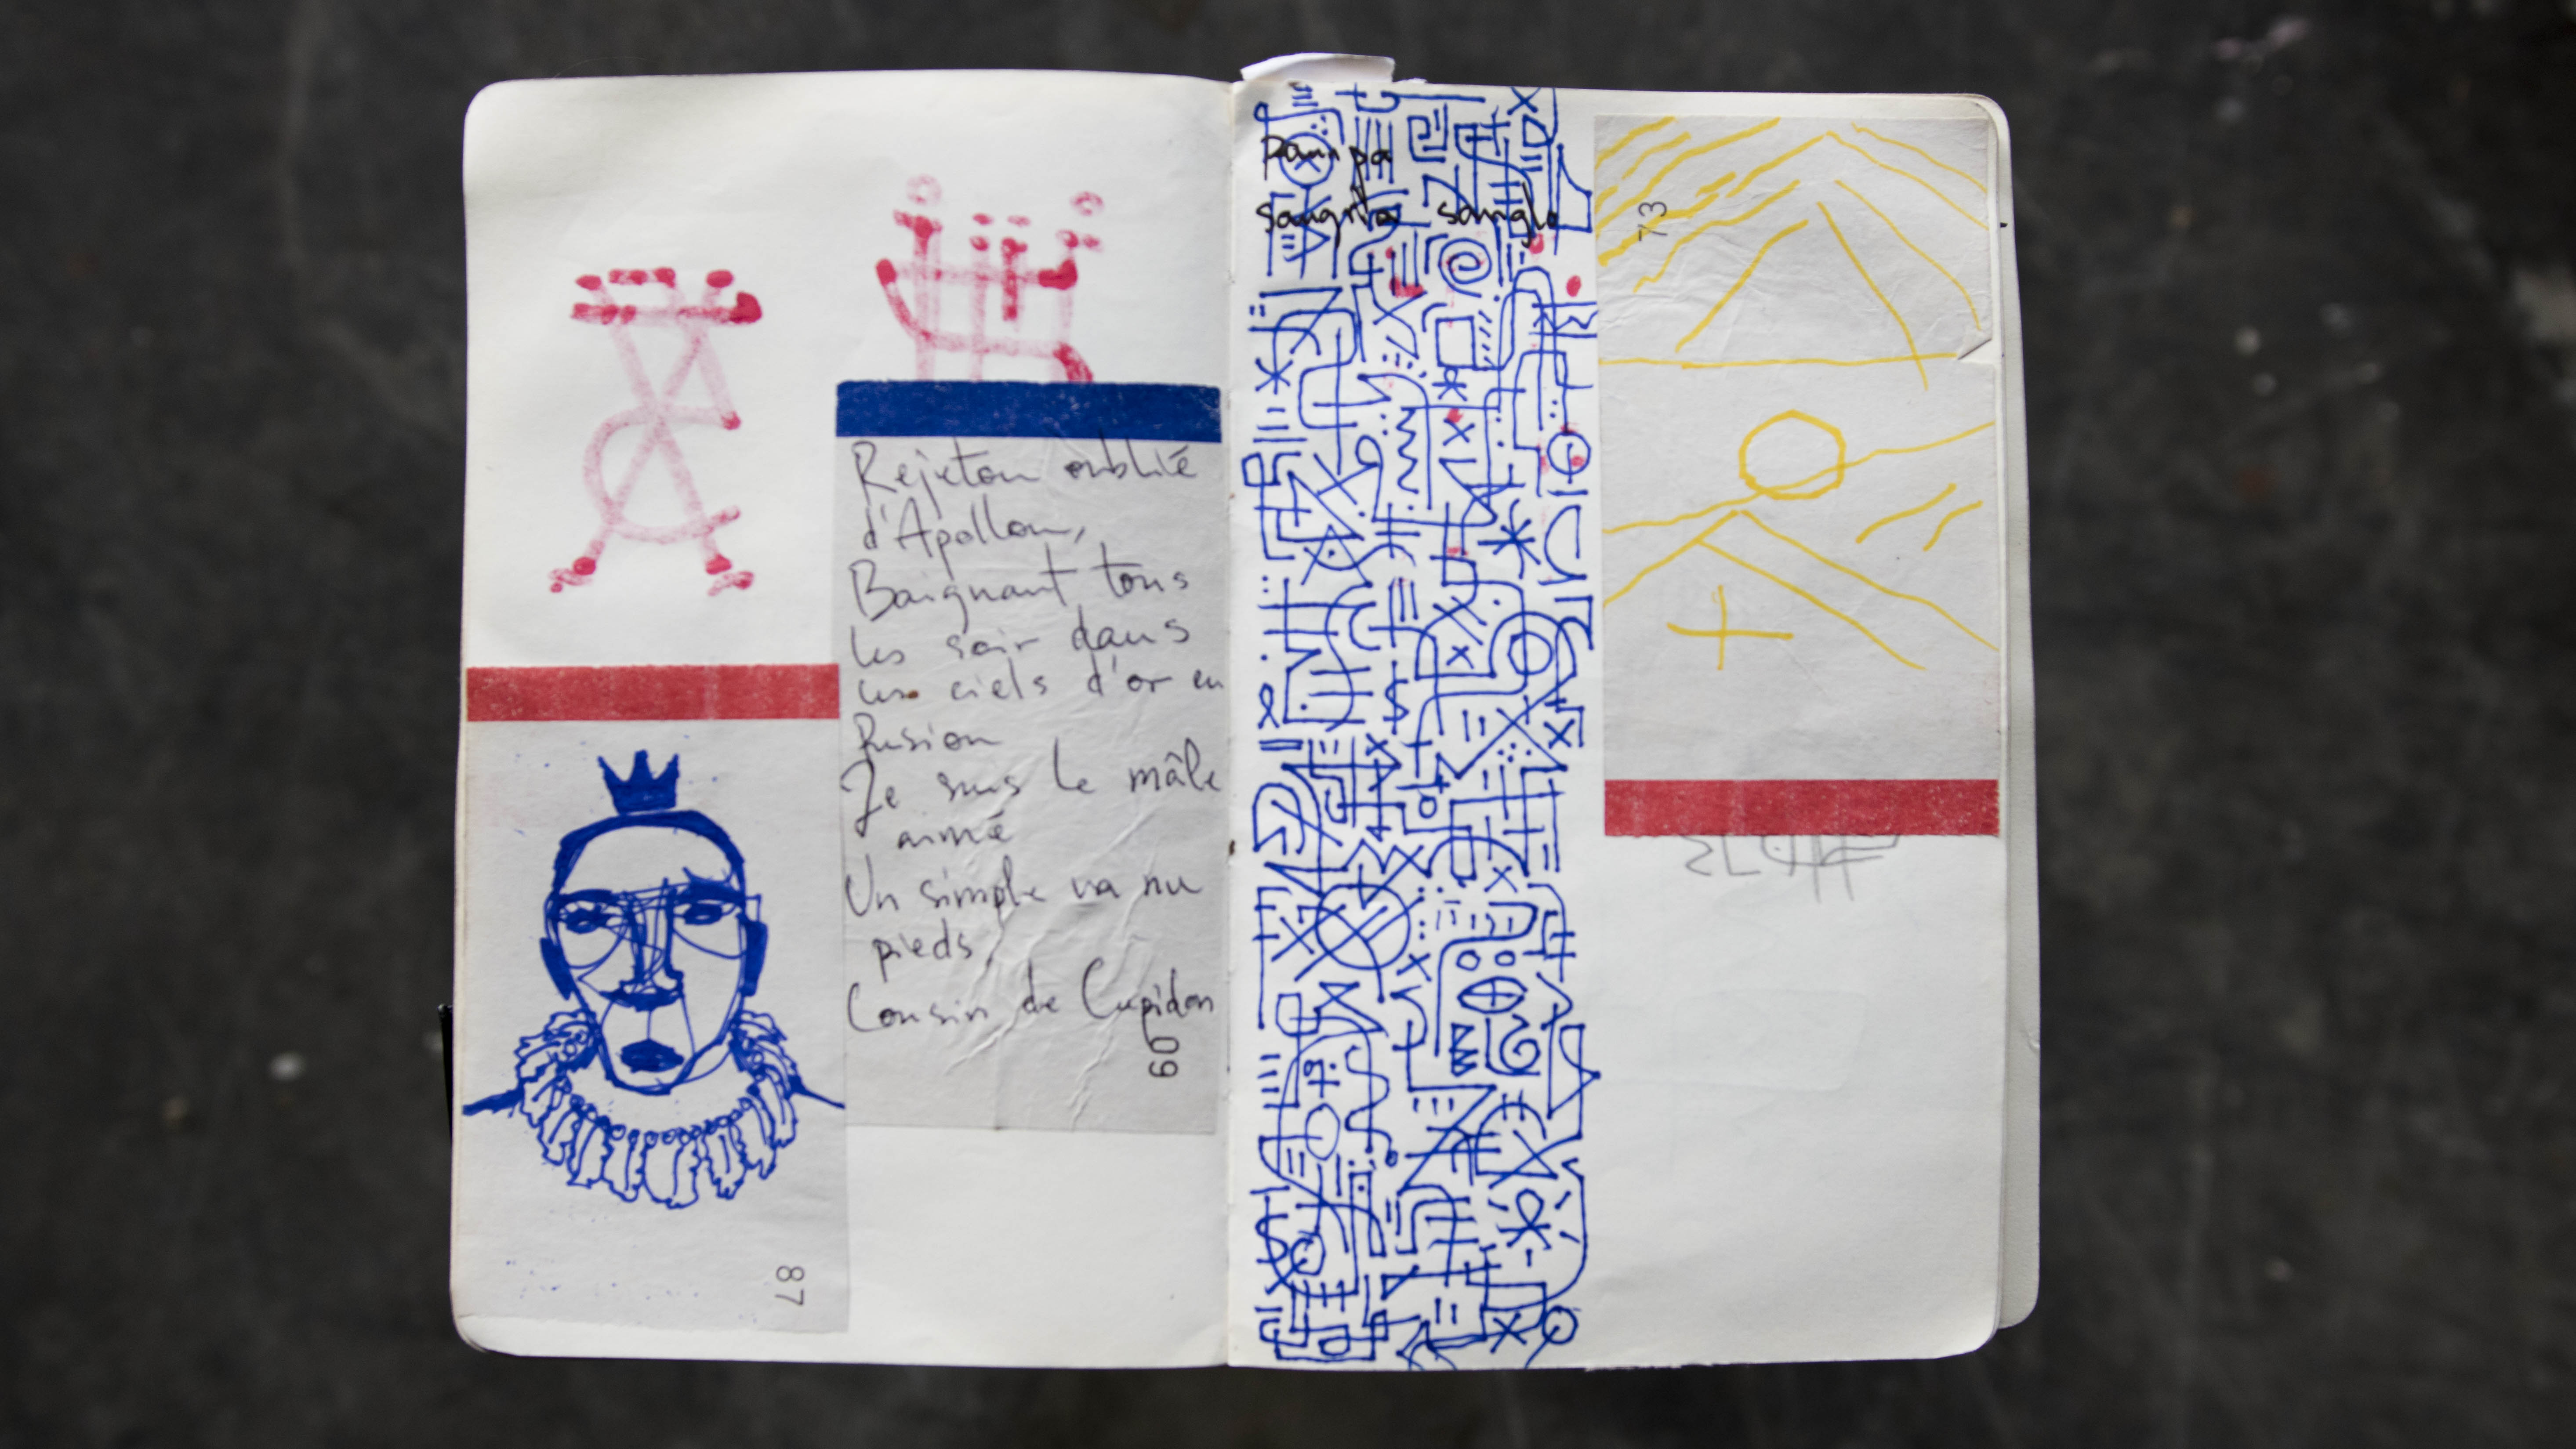 Rejeton oublié
d'Apollon,
Baignant tous
les soir dans
ces ciels d'or en
fusion
Je suis le mâle
aimé
Un simple va nu
pieds,
Cousin de Cupidon
60
87
Pampa
sangria sangle
73